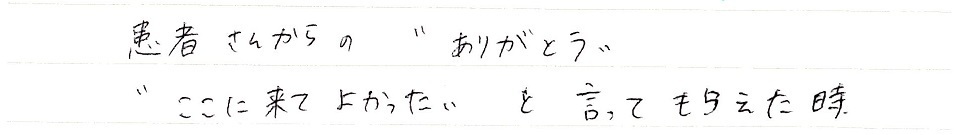 患者さんからの "ありがとう"
"ここに来てよかった" と言ってもらえた時